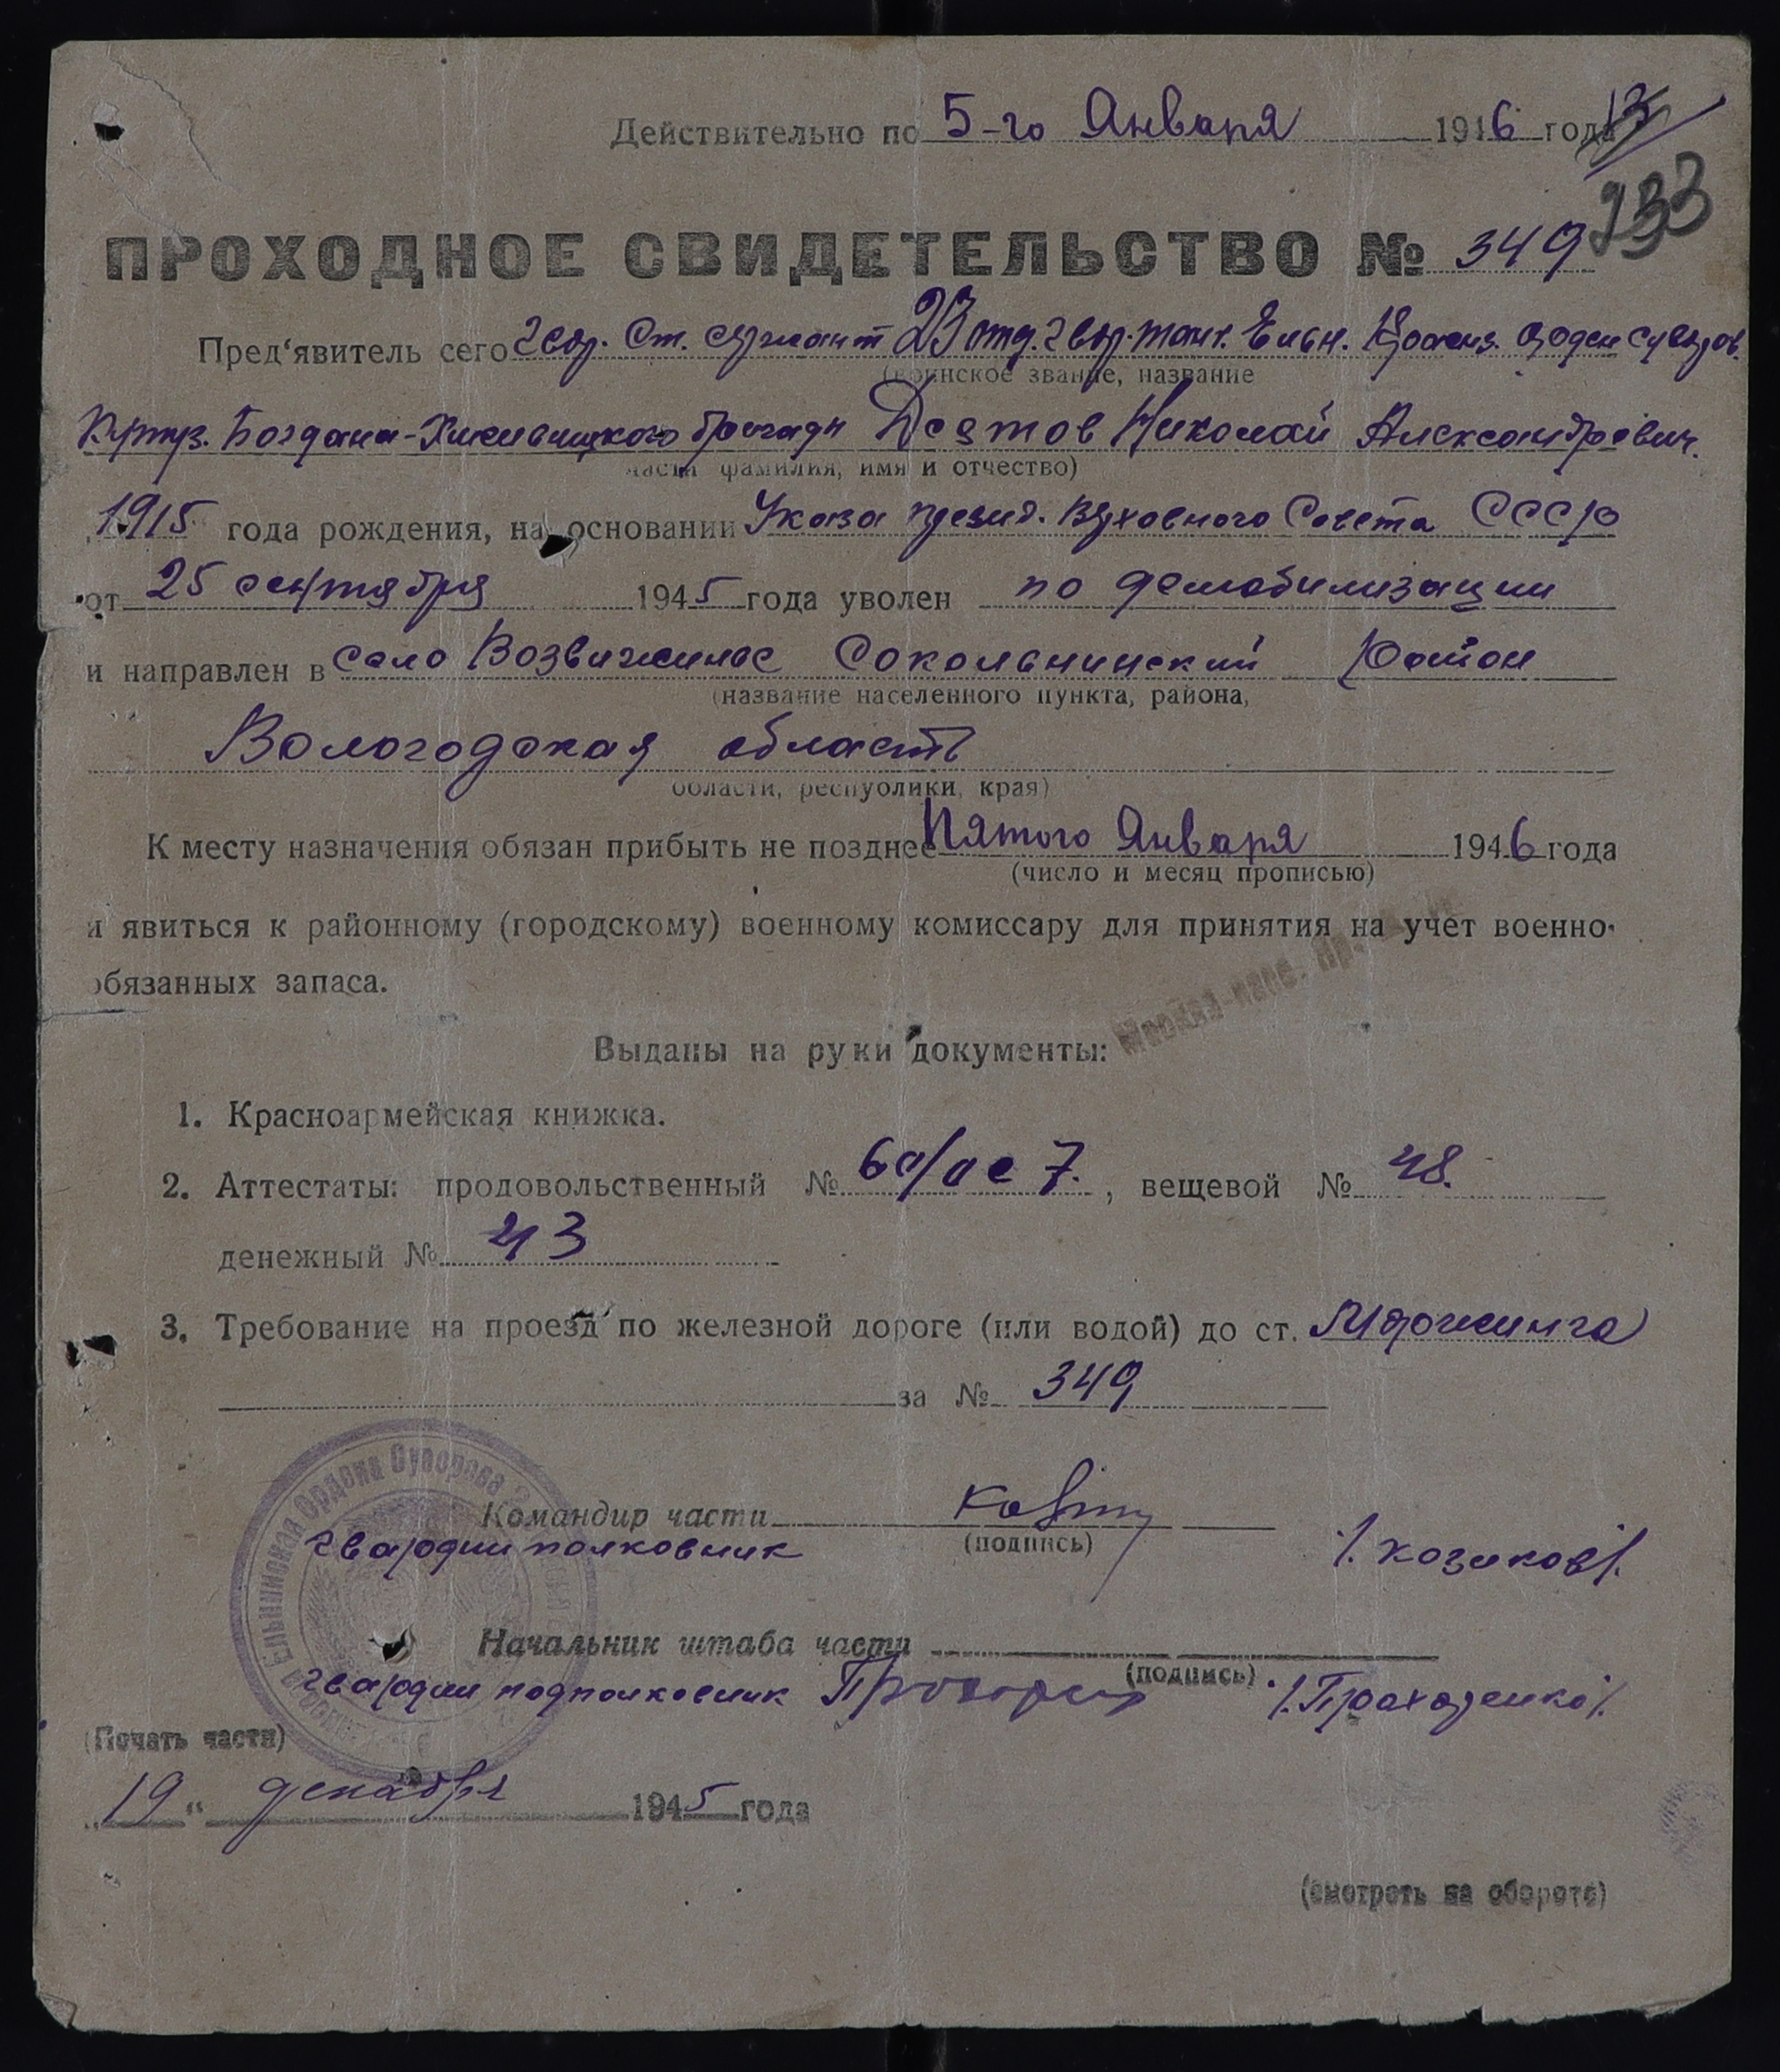 Действительно по 5-го Января 1946 года
13
133
ПРОХОДНОЕ СВИДЕТЕЛЬСТВО № 349
Пред'явитель сего гвар. Ст. сержант 23 отд. гвар. танк. Ельн. Краснз. орден Суворов.
(воинское звание, название
Кутуз. Богдана-Хмельницкого бригады Десятов Николай Александрович.
части фамилия, имя и отчество)
1915 года рождения, на основании Указа презид. Верховного Совета СССР
от 25 сентября 1945 года уволен по демобилизации
и направлен в село Возвиженье Сокольнинский Район
(название населенного пункта, района,
Вологодская область
области, республики, края)
К месту назначения обязан прибыть не позднее Пятого Января 1946 года
(число и месяц прописью)
и явиться к районному (городскому) военному комиссару для принятия на учет военно-
обязанных запаса.
Выданы на руки документы:
1. Красноармейская книжка.
2. Аттестаты: продовольственный № , вещевой № 48.
денежный № 43
3. Требование на проезд по железной дороге (или водой) до ст. Морженга
за № 349
Ельнинская Ордена Суворова
Командир части
(подпись)
гвардии полковник /. Козиков/.
Начальник штаба части
(подпись)
гвардии подполковник /. Прохоренко/.
(Печать части)
„19" декабря 1945 года
(смотреть на обороте)